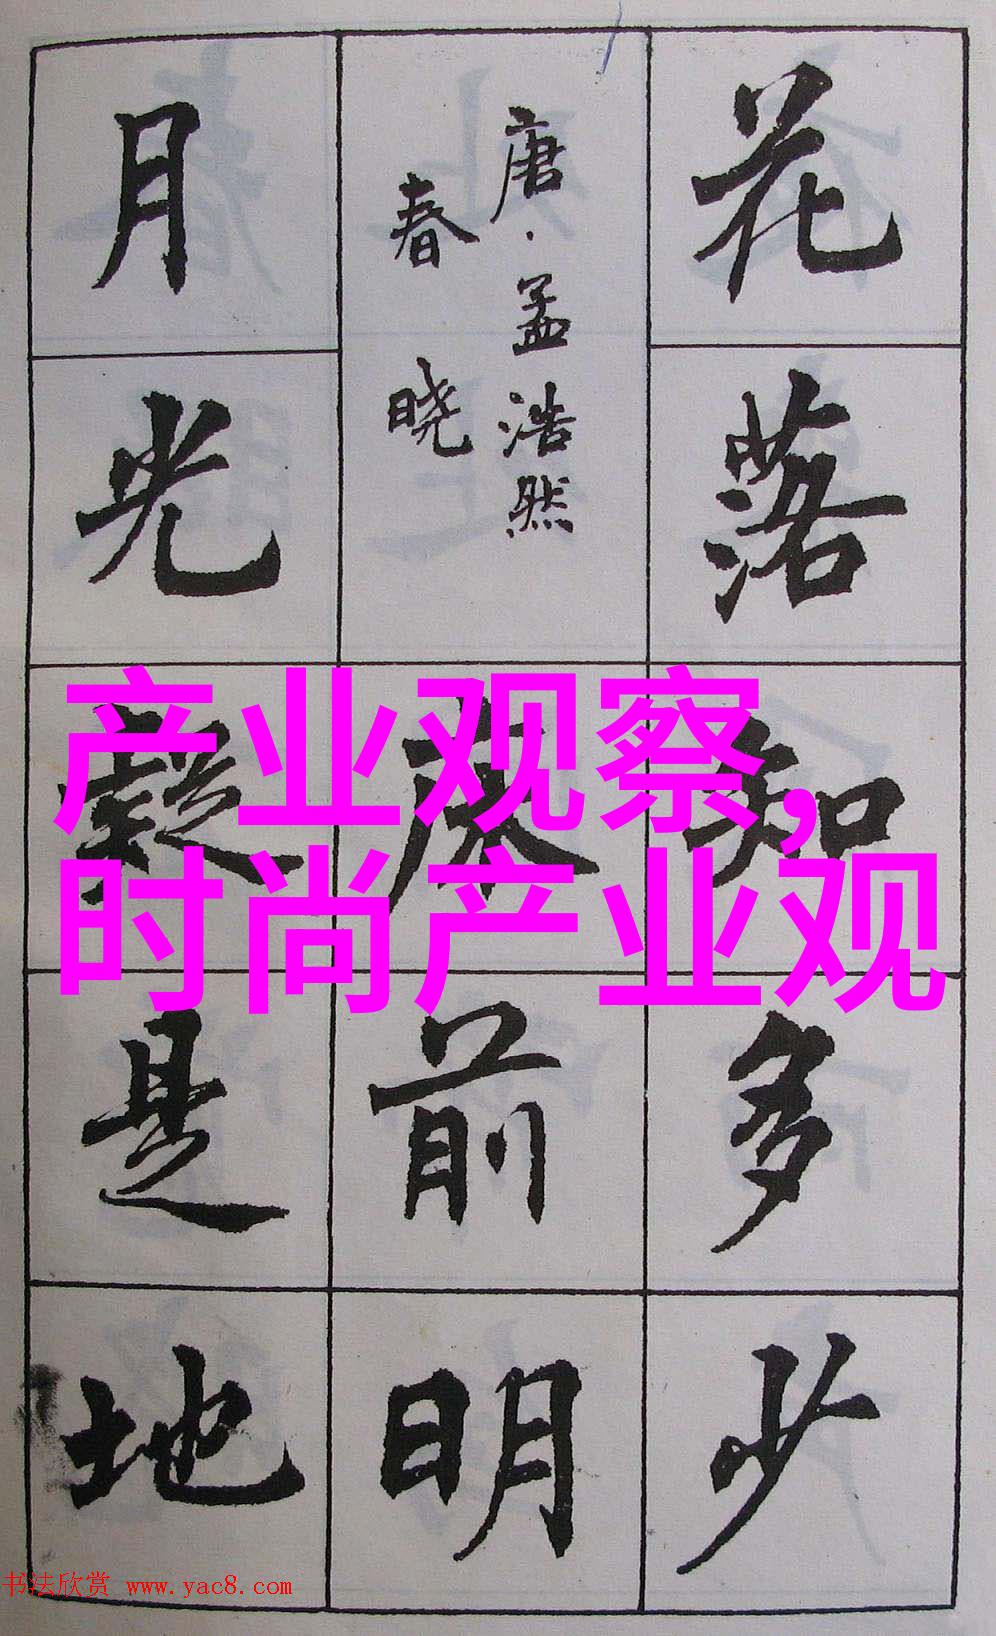 花落知多少
唐·孟浩然
春晓
床前明
月光疑是地
产业观察，
时尚产业观
书法欣赏 www.yac8.com